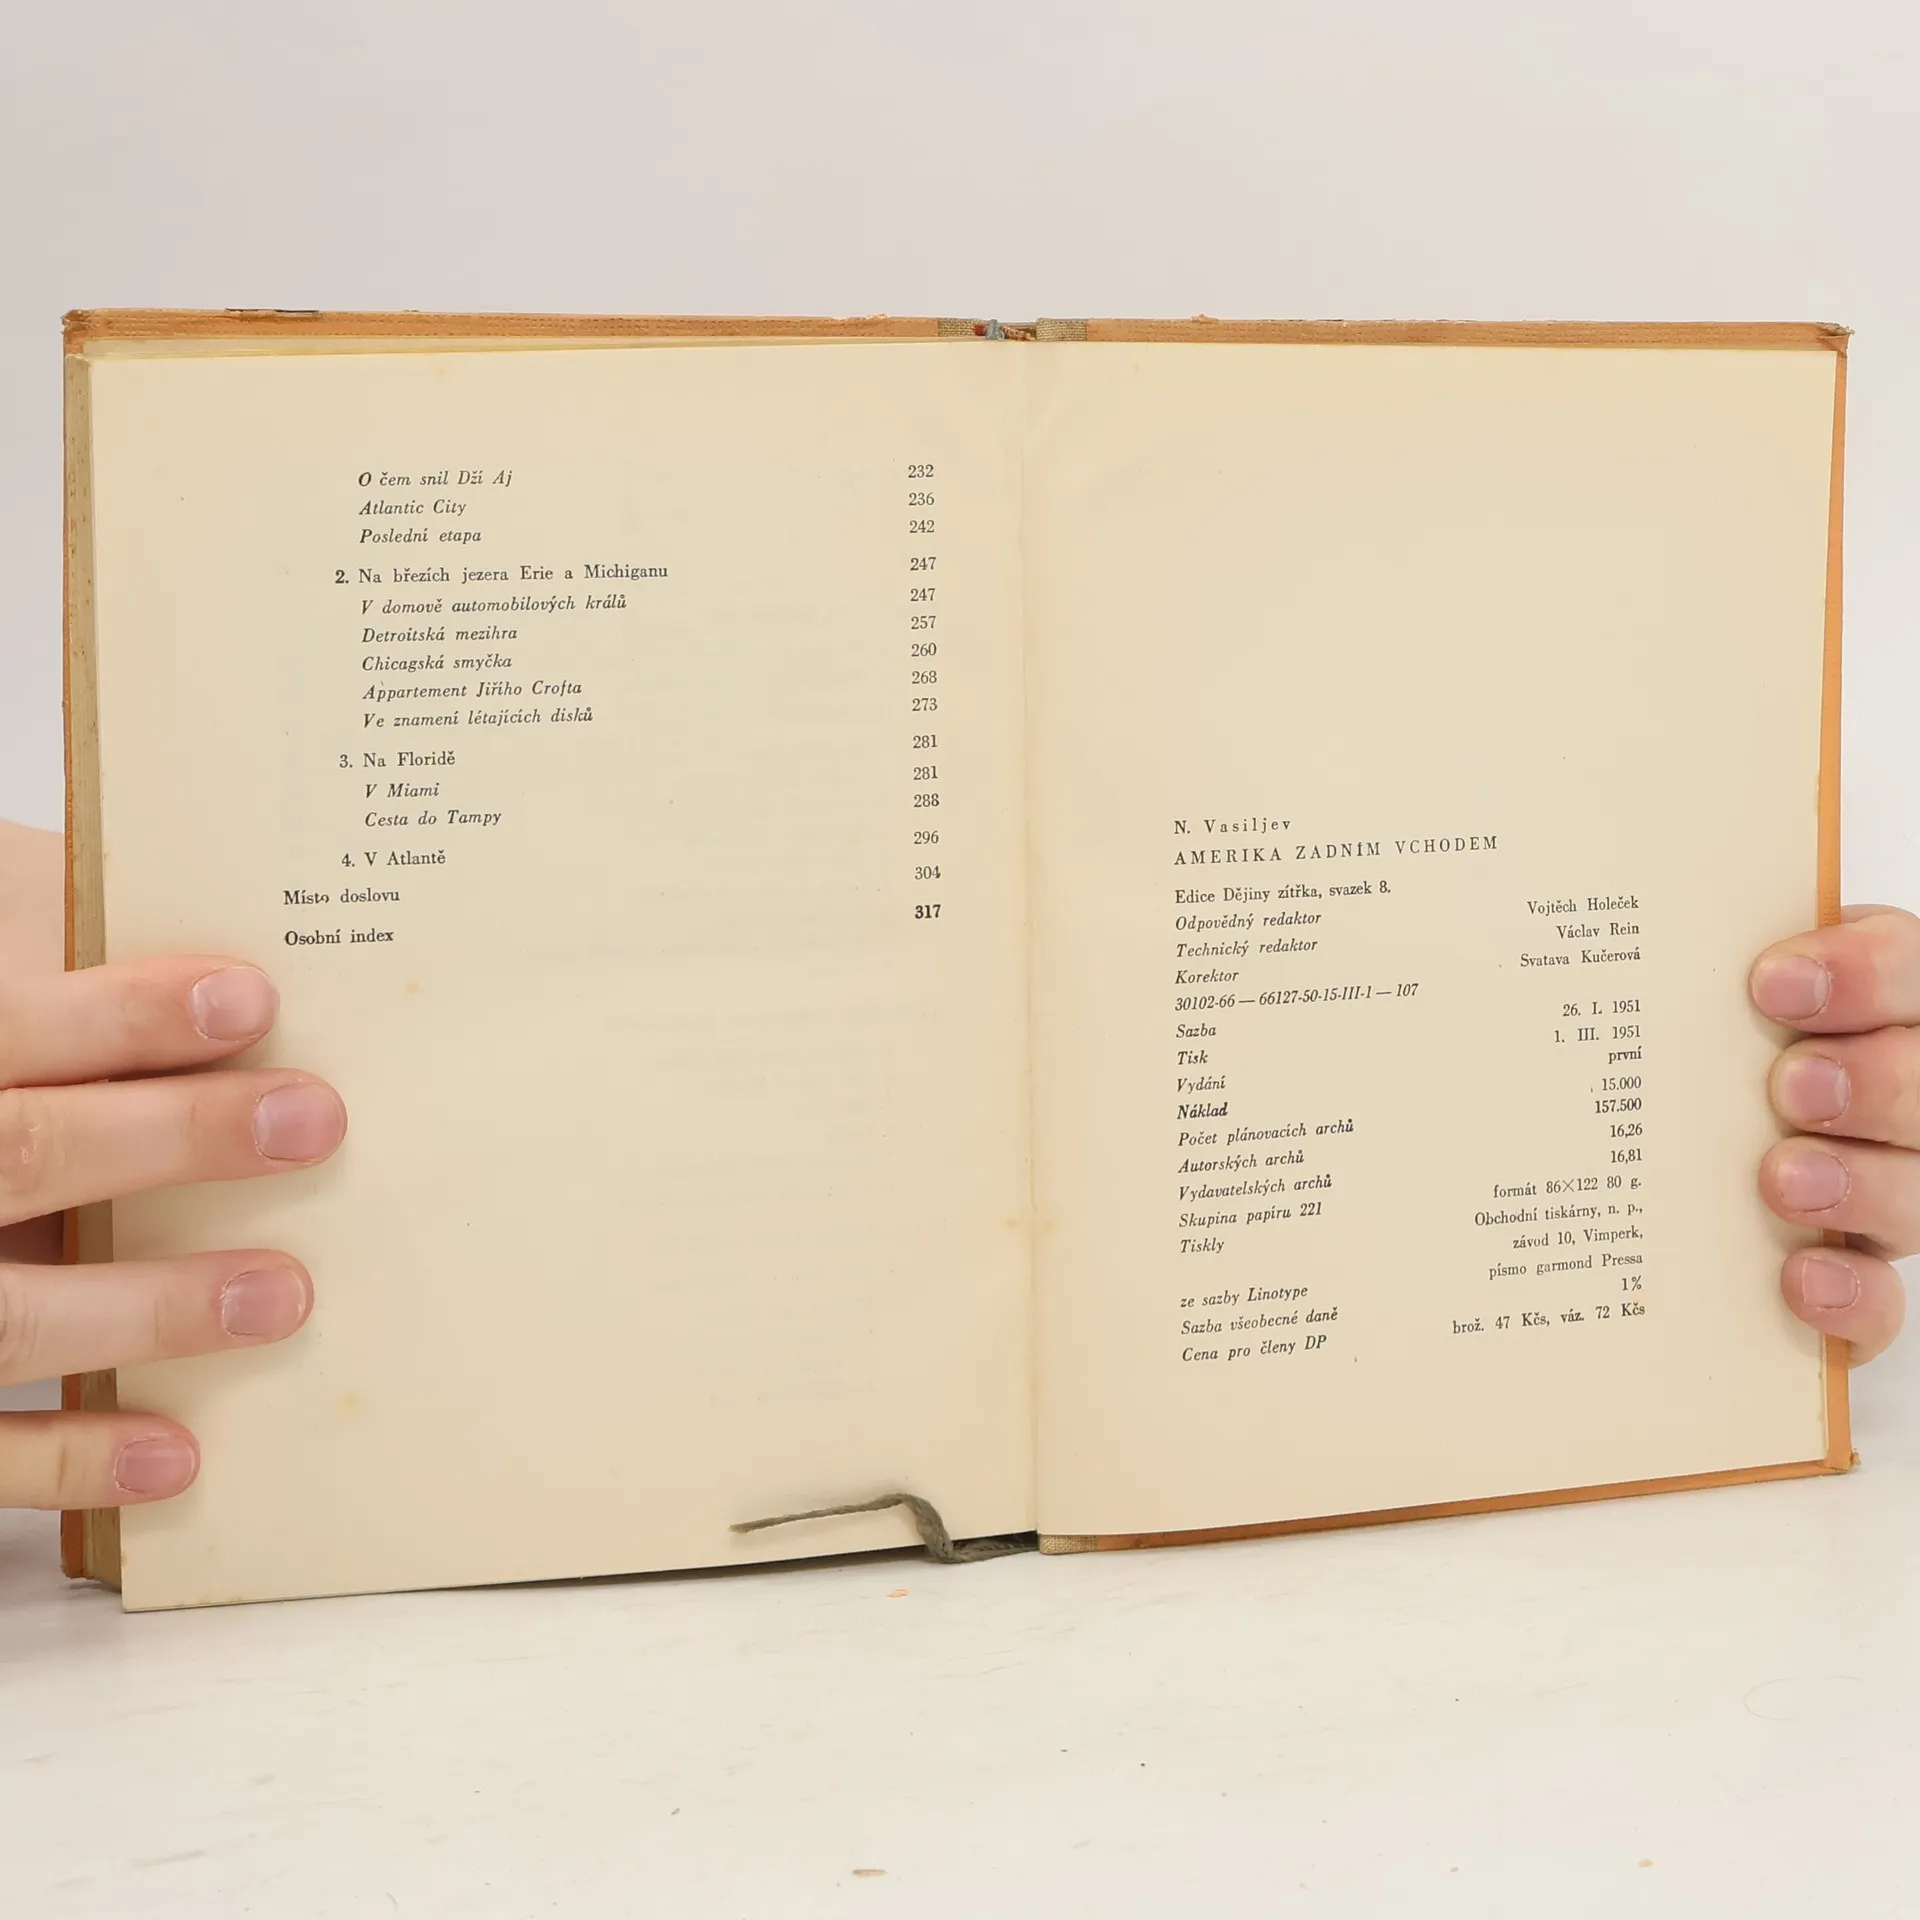 O čem snil Dží Aj 232
Atlantic City 236
Poslední etapa 242
2. Na březích jezera Erie a Michiganu 247
V domově automobilových králů 247
Detroitská mezihra 257
Chicagská smyčka 260
Appartement Jiřího Crofta 268
Ve znamení létajících disků 273
3. Na Floridě 281
V Miami 281
Cesta do Tampy 288
4. V Atlantě 296
Místo doslovu 304
Osobní index 317
N. Vasiljev
AMERIKA ZADNÍM VCHODEM
Edice Dějiny zítřka, svazek 8.
Odpovědný redaktor Vojtěch Holeček
Technický redaktor Václav Rein
Korektor Svatava Kučerová
30102-66 — 66127-50-15-III-1 — 107
Sazba 26. I. 1951
Tisk 1. III. 1951
Vydání první
Náklad 15.000
Počet plánovacích archů 157.500
Autorských archů 16,26
Vydavatelských archů 16,81
Skupina papíru 221 formát 86×122 80 g.
Tiskly Obchodní tiskárny, n. p.,
závod 10, Vimperk,
ze sazby Linotype písmo garmond Pressa
Sazba všeobecné daně 1%
Cena pro členy DP brož. 47 Kčs, váz. 72 Kčs